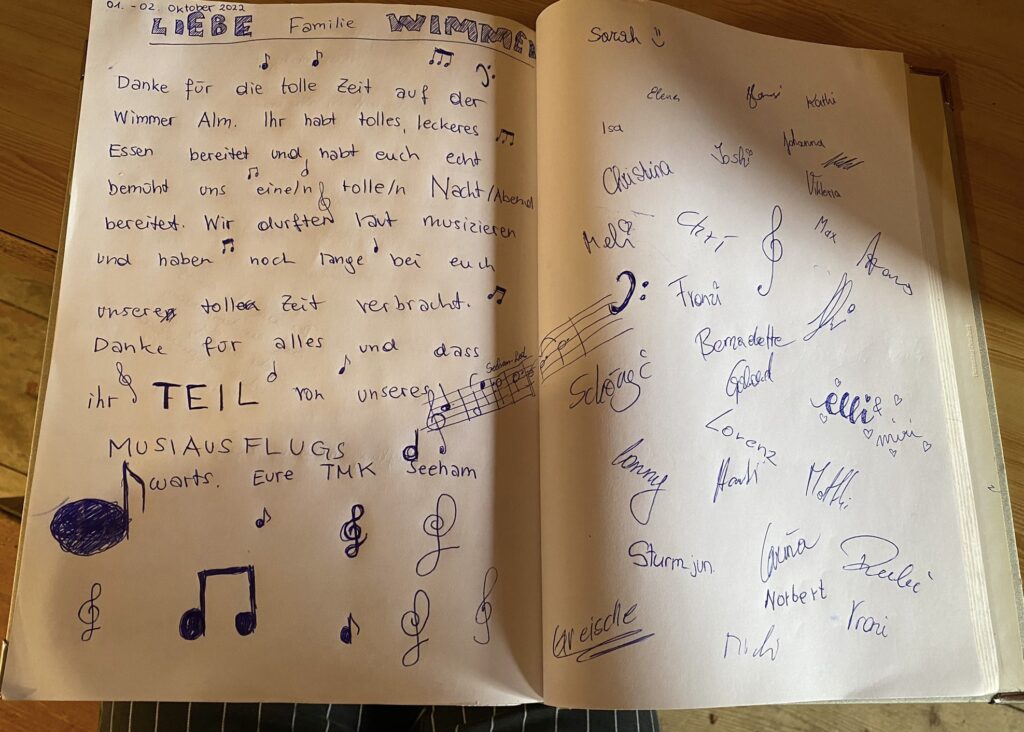 01. - 02. Oktober 2022
LIEBE Familie WIMMER
Danke für die tolle Zeit auf der
Wimmer Alm. Ihr habt tolles, leckeres
Essen bereitet und habt euch echt
bemüht uns eine/n tolle/n Nacht/Abend
bereitet. Wir durften laut musizieren
und haben noch lange bei euch
unsere tolle Zeit verbracht.
Danke für alles und dass
ihr TEIL von unseres
MUSIAUSFLUGS
warts. Eure TMK Seeham
Sarah
Elena Hansi Kathi
Isa
Johanna
Christina Joshi
Viktoria
Meli Chri Max
Franzi
Bernadette
Gerhard
elli &
miri
Lorenz
Conny Hansi Matthi
Sturm jun.
Norbert
Vroni
Greischle
Michi